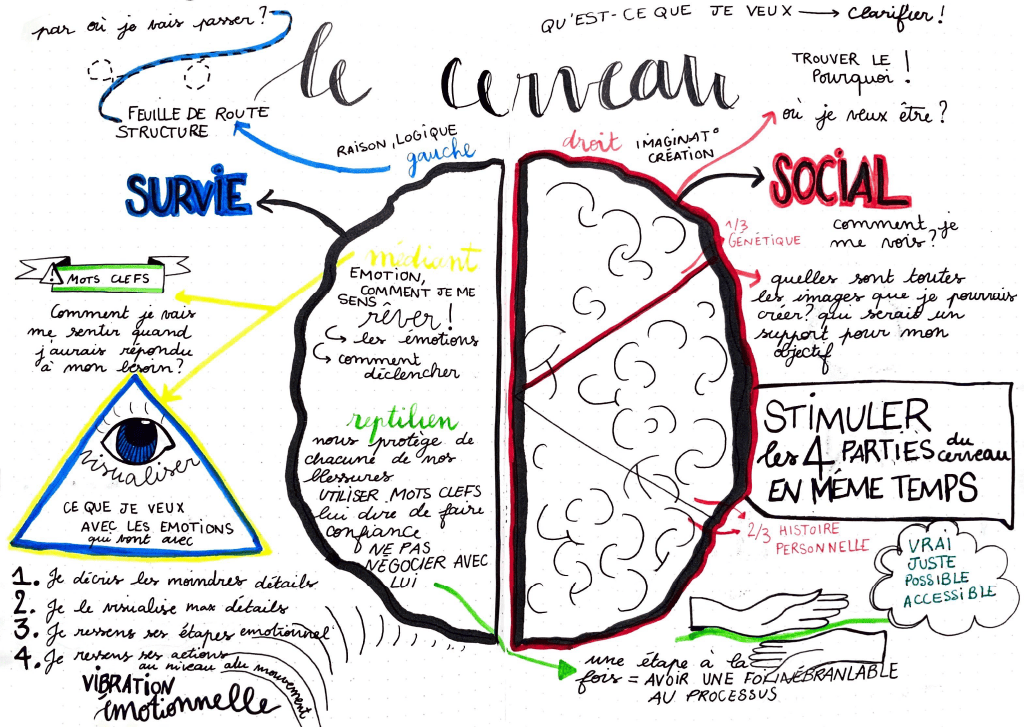 par où je vais passer?
FEUILLE DE ROUTE
STRUCTURE
le cerveau
QU'EST-CE QUE JE VEUX → clarifier!
TROUVER LE
Pourquoi!
où je veux être?
RAISON, LOGIQUE
gauche
droit IMAGINAT°
CRÉATION
SURVIE
SOCIAL
comment je
me vois?
1/3
GÉNÉTIQUE
quelles sont toutes
les images que je pourrais
créer? qui serais un
support pour mon
objectif
MOTS CLEFS
Comment je vais
me sentir quand
j'aurais répondu
à mon besoin?
médiant
EMOTION,
COMMENT JE ME
SENS
rêver!
les émotions
comment
déclencher
reptilien
nous protège de
chacune de nos
blessures
UTILISER MOTS CLEFS
lui dire de faire
confiance
NE PAS
NÉGOCIER AVEC
LUI
visualiser
CE QUE JE VEUX
AVEC LES EMOTIONS
qui vont avec
STIMULER
les 4 PARTIES du
cerveau
EN MÊME TEMPS
2/3 HISTOIRE
PERSONNELLE
VRAI
JUSTE
POSSIBLE
ACCESSIBLE
1. Je décris les moindres détails
2. Je le visualise max détails
3. Je ressens ses étapes emotionnel
4. Je ressens ses actions
au niveau du mouvement
VIBRATION
émotionnelle
une étape à la
fois = AVOIR UNE FOI INÉBRANLABLE
AU PROCESSUS